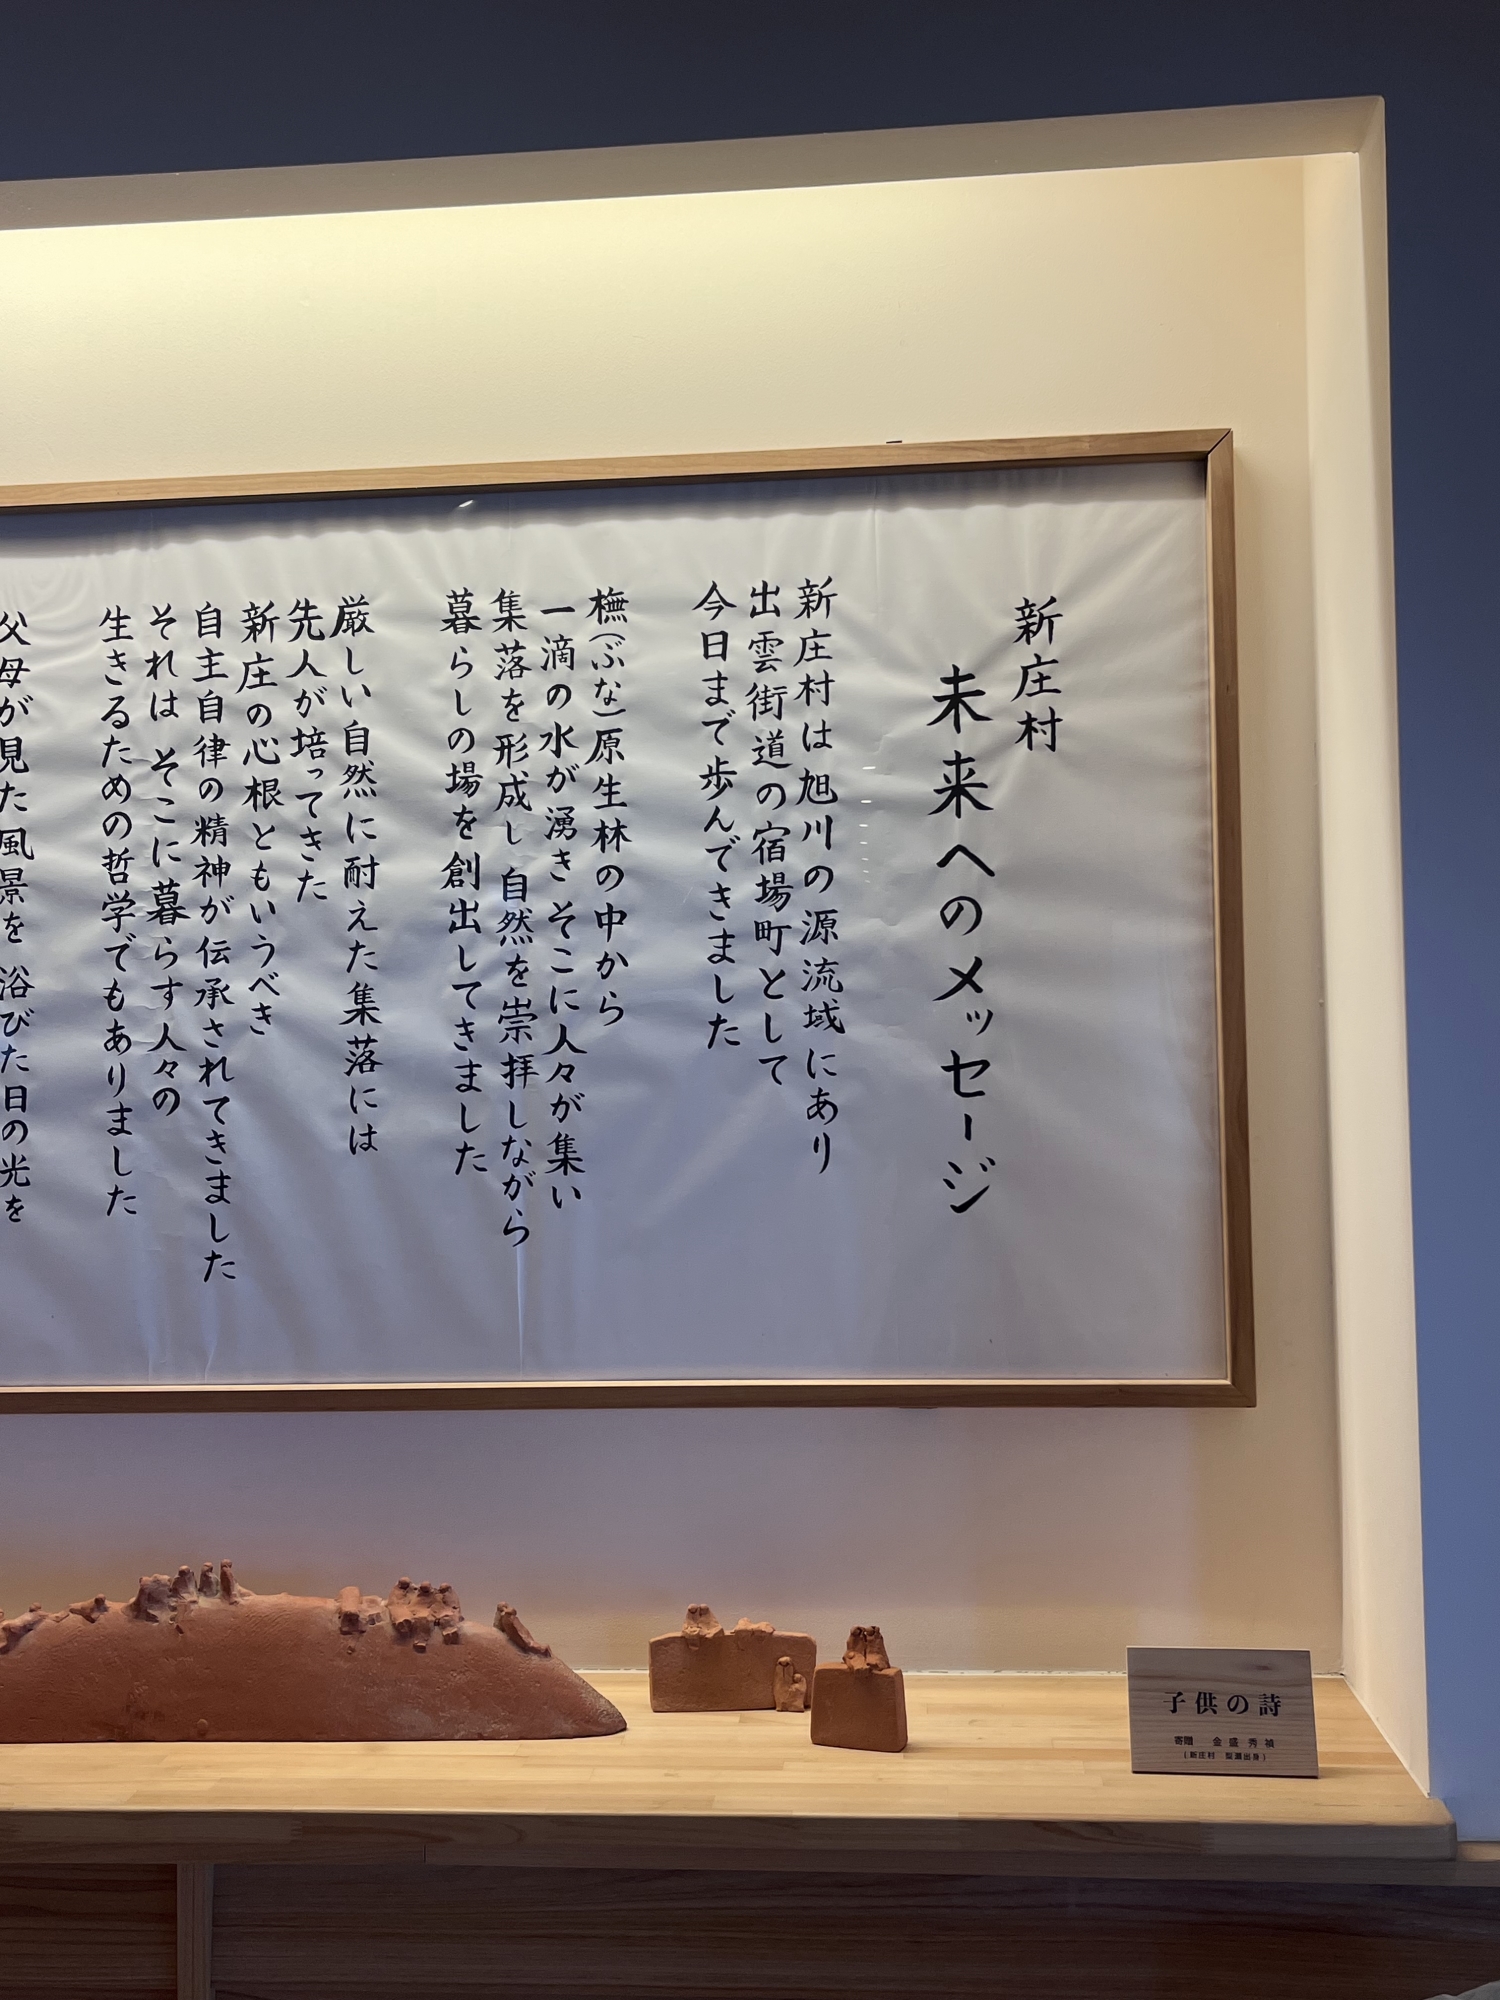 新庄村
未来へのメッセージ
新庄村は旭川の源流域にあり
出雲街道の宿場町として
今日まで歩んできました
橅(ぶな)原生林の中から
一滴の水が湧き そこに人々が集い
集落を形成し 自然を崇拝しながら
暮らしの場を創出してきました
厳しい自然に耐えた集落には
先人が培ってきた
新庄の心根ともいうべき
自主自律の精神が伝承されてきました
それは そこに暮らす人々の
生きるための哲学でもありました
父母が見た風景を 浴びた日の光を
子供の詩
寄贈 金盛秀禎
(新庄村 梨瀬出身)